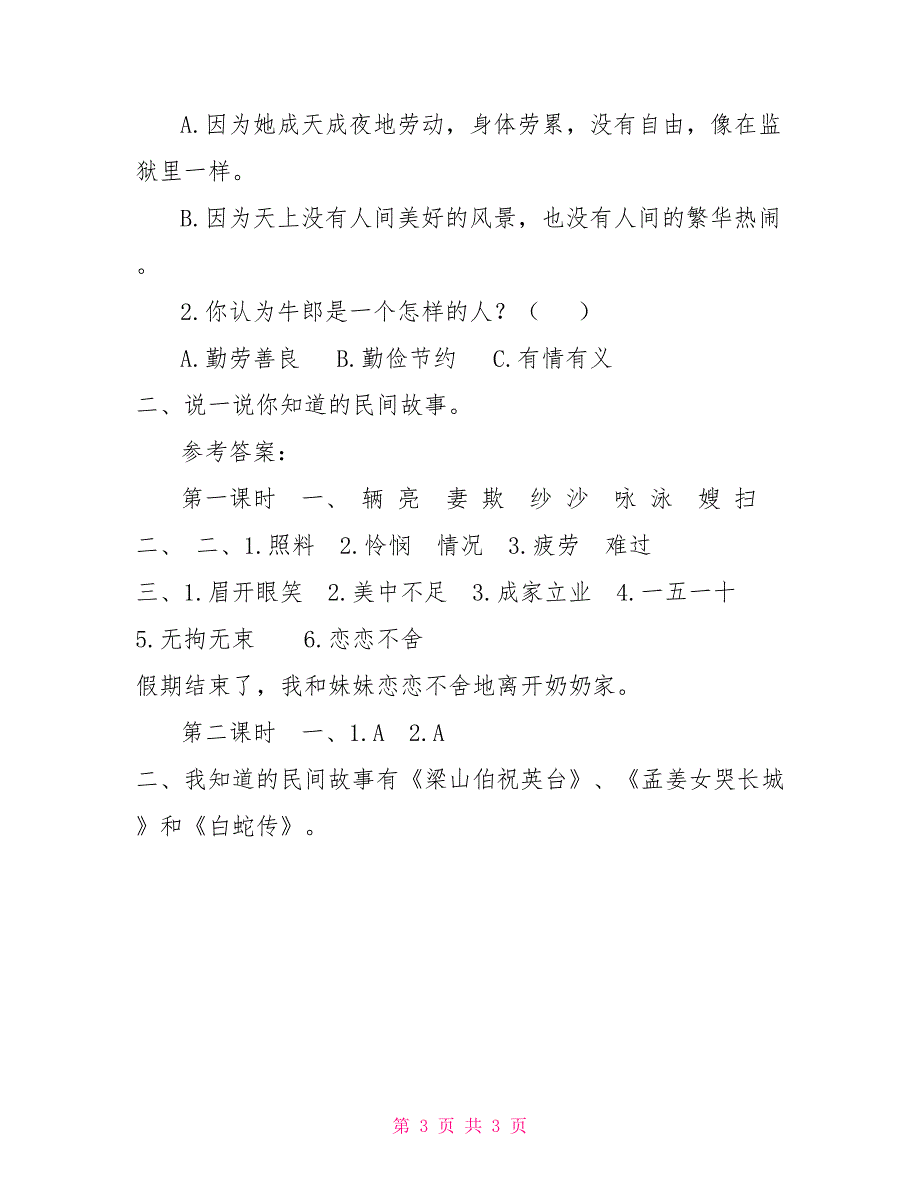 A.因为她成天成夜地劳动，身体劳累，没有自由，像在监
狱里一样。
B.因为天上没有人间美好的风景，也没有人间的繁华热闹
。
2.你认为牛郎是一个怎样的人？（　）
A.勤劳善良　B.勤俭节约　C.有情有义
二、说一说你知道的民间故事。
参考答案：
第一课时　一、 辆 亮　妻 欺　纱 沙　咏 泳　嫂 扫
二、 二、1.照料　2.怜悯　情况　3.疲劳　难过
三、1.眉开眼笑　2.美中不足　3.成家立业　4.一五一十
5.无拘无束　　6.恋恋不舍
假期结束了，我和妹妹恋恋不舍地离开奶奶家。
第二课时　一、1.A　2.A
二、我知道的民间故事有《梁山伯祝英台》、《孟姜女哭长城
》和《白蛇传》。
第 3 页 共 3 页